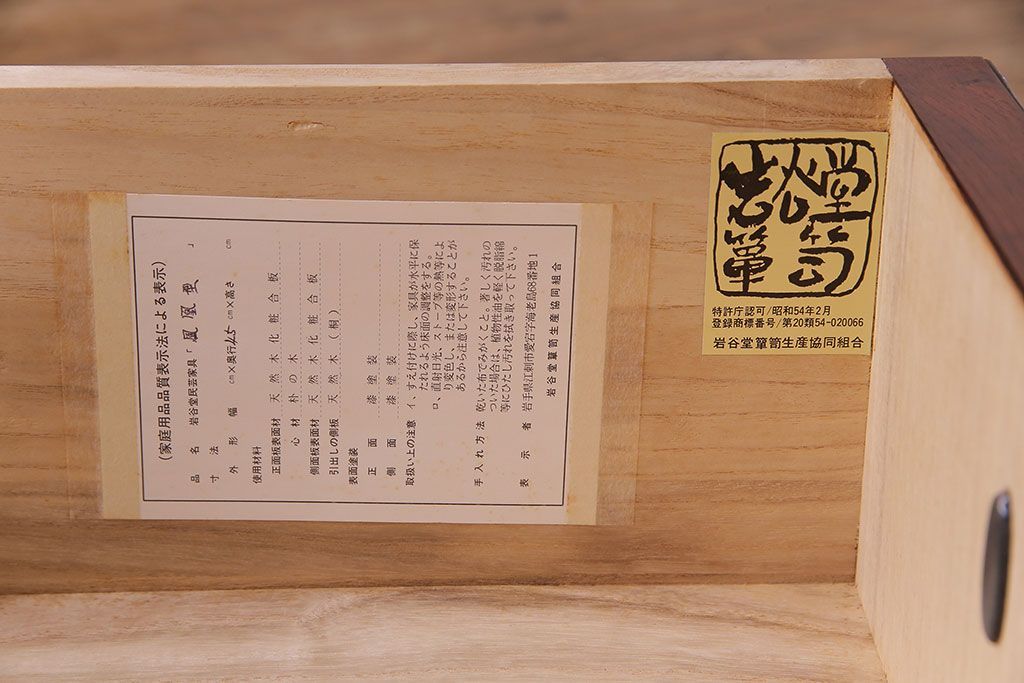 (家庭用品品質表示法による表示)
品名 岩谷堂民芸家具「鳳凰
」
寸法
外形 幅 cm×奥行 cm×高さ cm
使用材料
正面板表面材 天然木化粧合板
心材 朴の木
側面板表面材 天然木化粧合板
引出しの側板 天然木(桐)
表面塗装
正面 漆塗装
側面 漆塗装
取扱い上の注意 イ、すえ付けに際し、家具が水平に保
たれるよう床面の調整をする。
ロ、直射日光、ストーブ等の熱等によ
り変色し、または変形することが
あるから注意して下さい。
手入れ方法 乾いた布でみがくこと。著しく汚れの
ついた場合は、植物性油を軽く脱脂綿
等にひたし汚れを拭き取って下さい。
表示者 岩手県江刺市愛宕字海老島68番地1
岩谷堂簞笥生産協同組合
岩谷堂
簞笥
特許庁認可/昭和54年2月
登録商標番号/第20類54-020066
岩谷堂簞笥生産協同組合